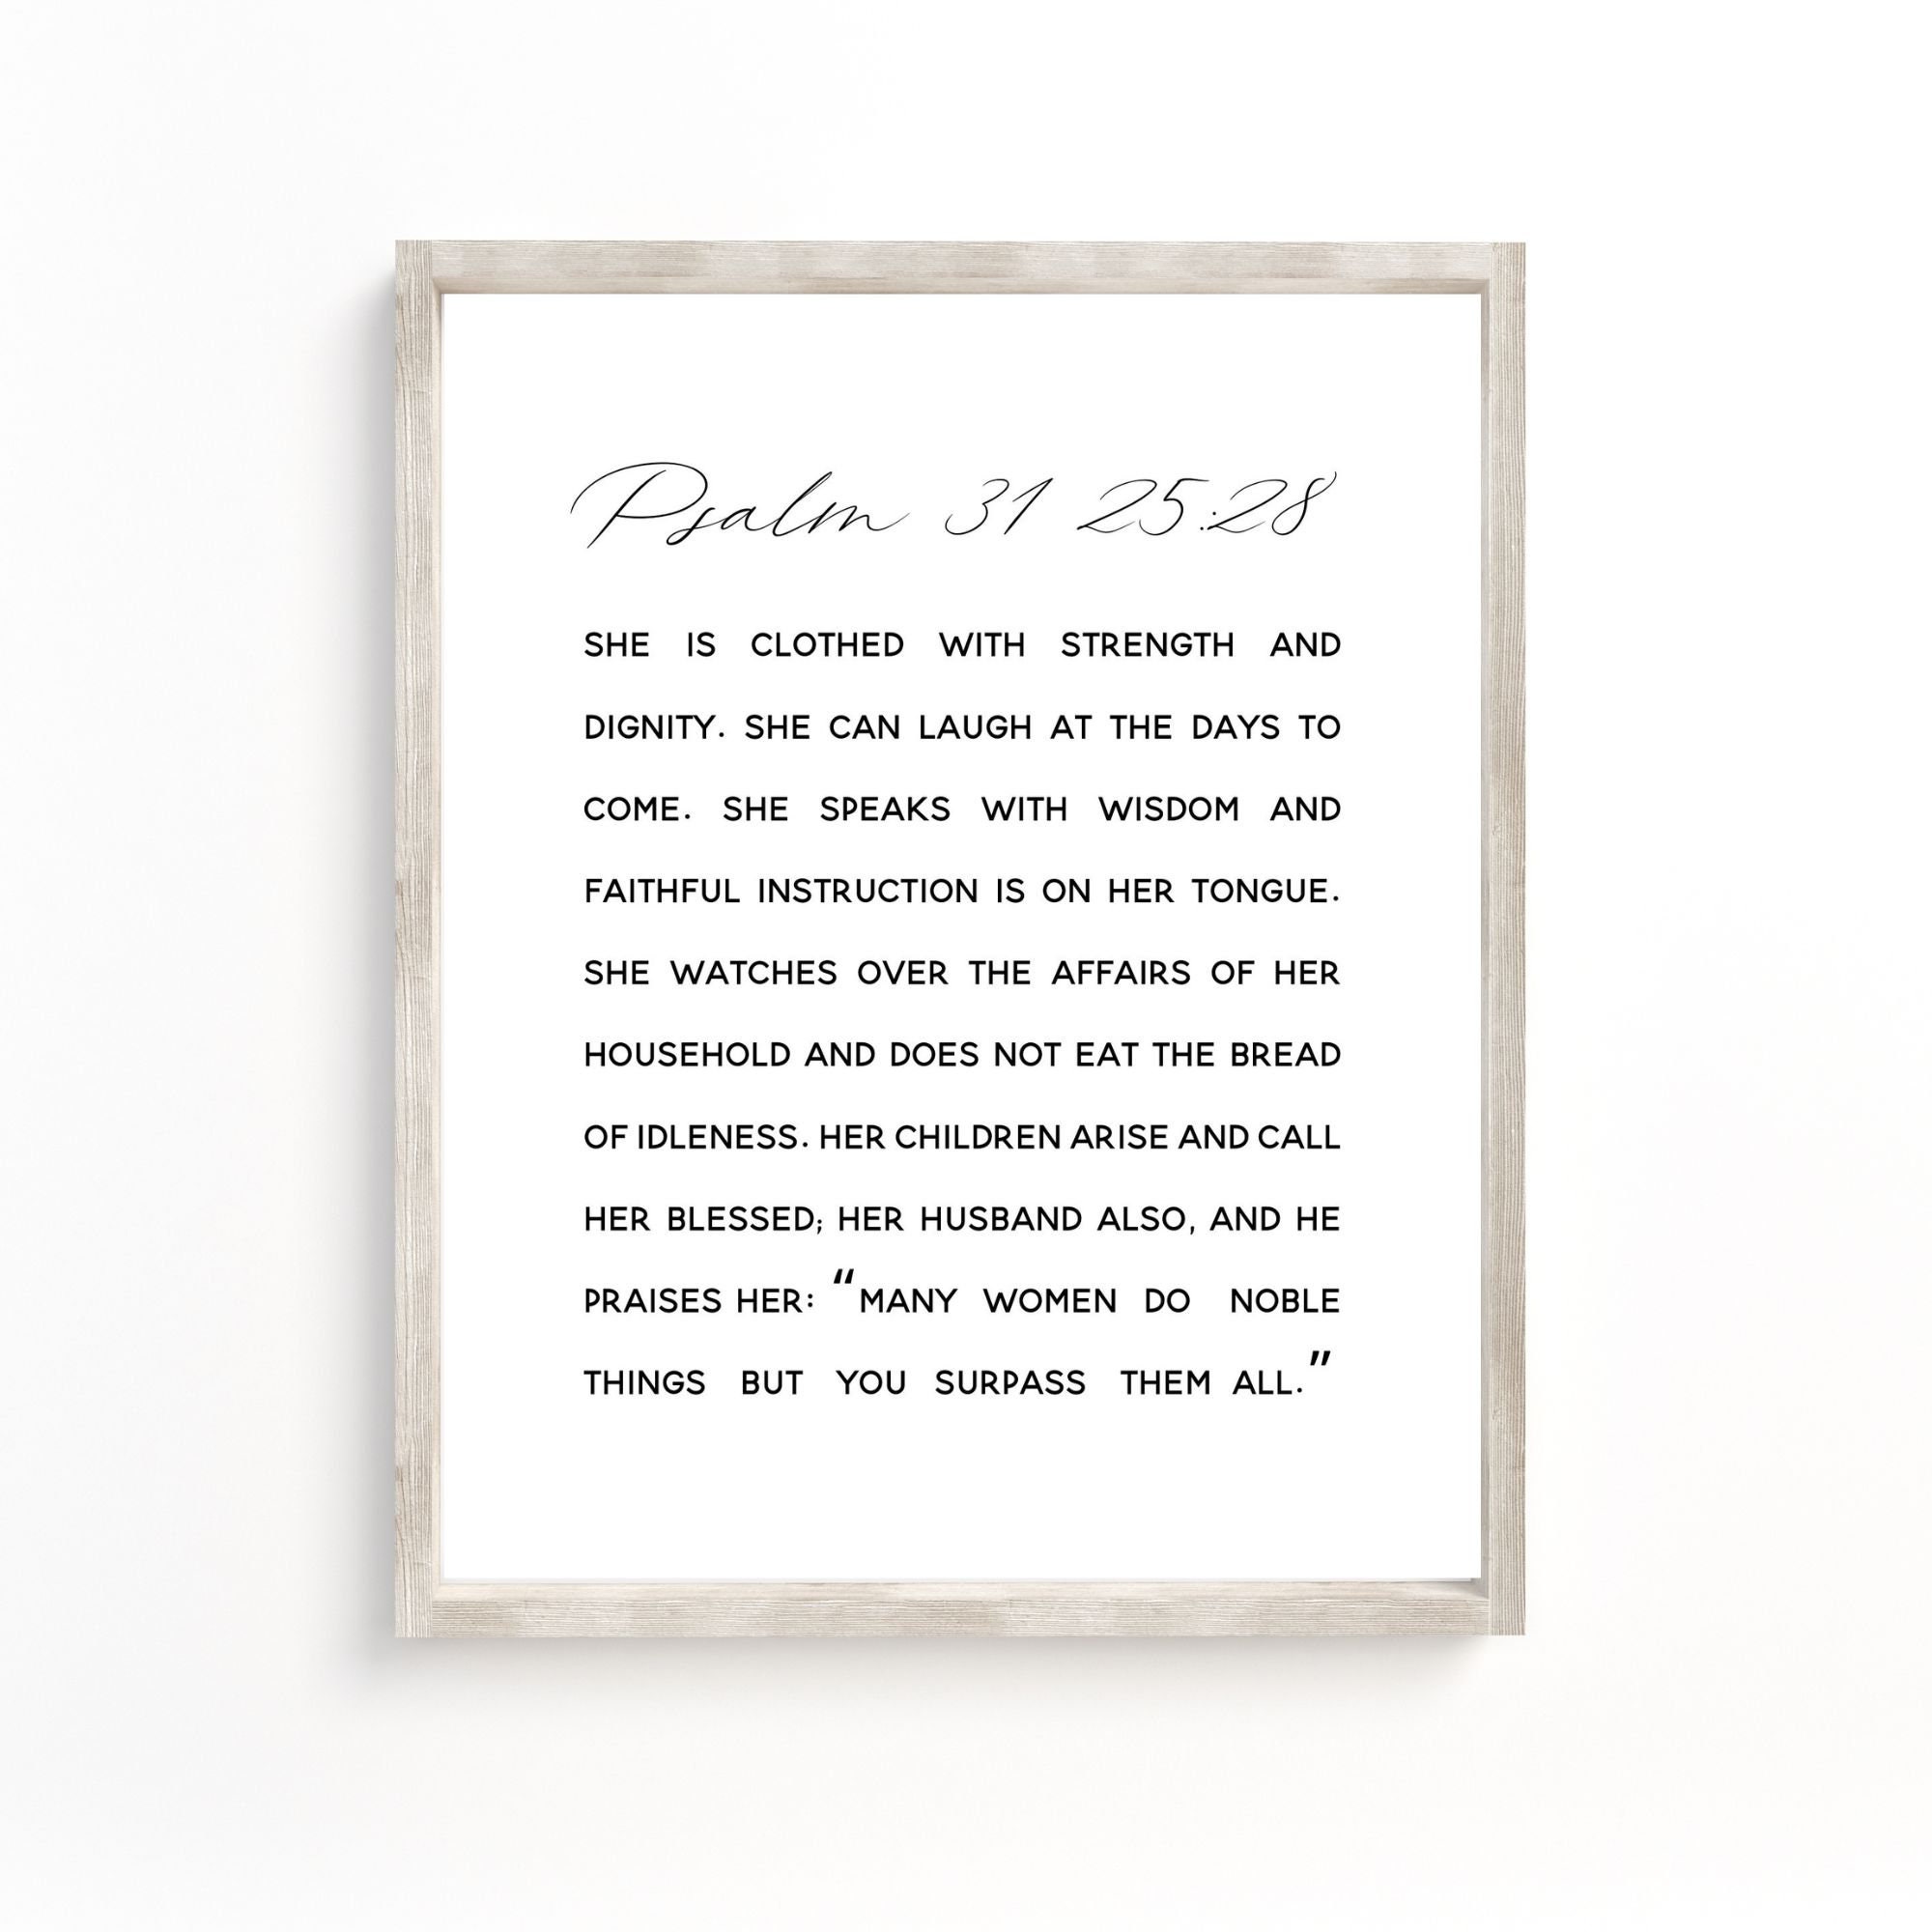 Psalm 31 25:28
SHE IS CLOTHED WITH STRENGTH AND
DIGNITY. SHE CAN LAUGH AT THE DAYS TO
COME. SHE SPEAKS WITH WISDOM AND
FAITHFUL INSTRUCTION IS ON HER TONGUE.
SHE WATCHES OVER THE AFFAIRS OF HER
HOUSEHOLD AND DOES NOT EAT THE BREAD
OF IDLENESS. HER CHILDREN ARISE AND CALL
HER BLESSED; HER HUSBAND ALSO, AND HE
PRAISES HER: “MANY WOMEN DO NOBLE
THINGS BUT YOU SURPASS THEM ALL.”